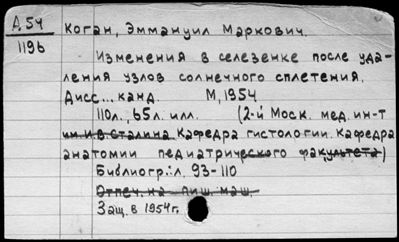 А.54
119б
Коган, Эммануил Маркович.
Изменения в селезенке после уда-
ления узлов солнечного сплетения.
Дисс... канд. М, 1954
110л., 65л. илл. (2-й Моск. мед. ин-т
им И.В. Сталина. Кафедра гистологии. Кафедра
анатомии педиатрического факультета)
Библиогр.: л. 93-110
Отпеч. на пиш. маш.
Защ. в 1954г.